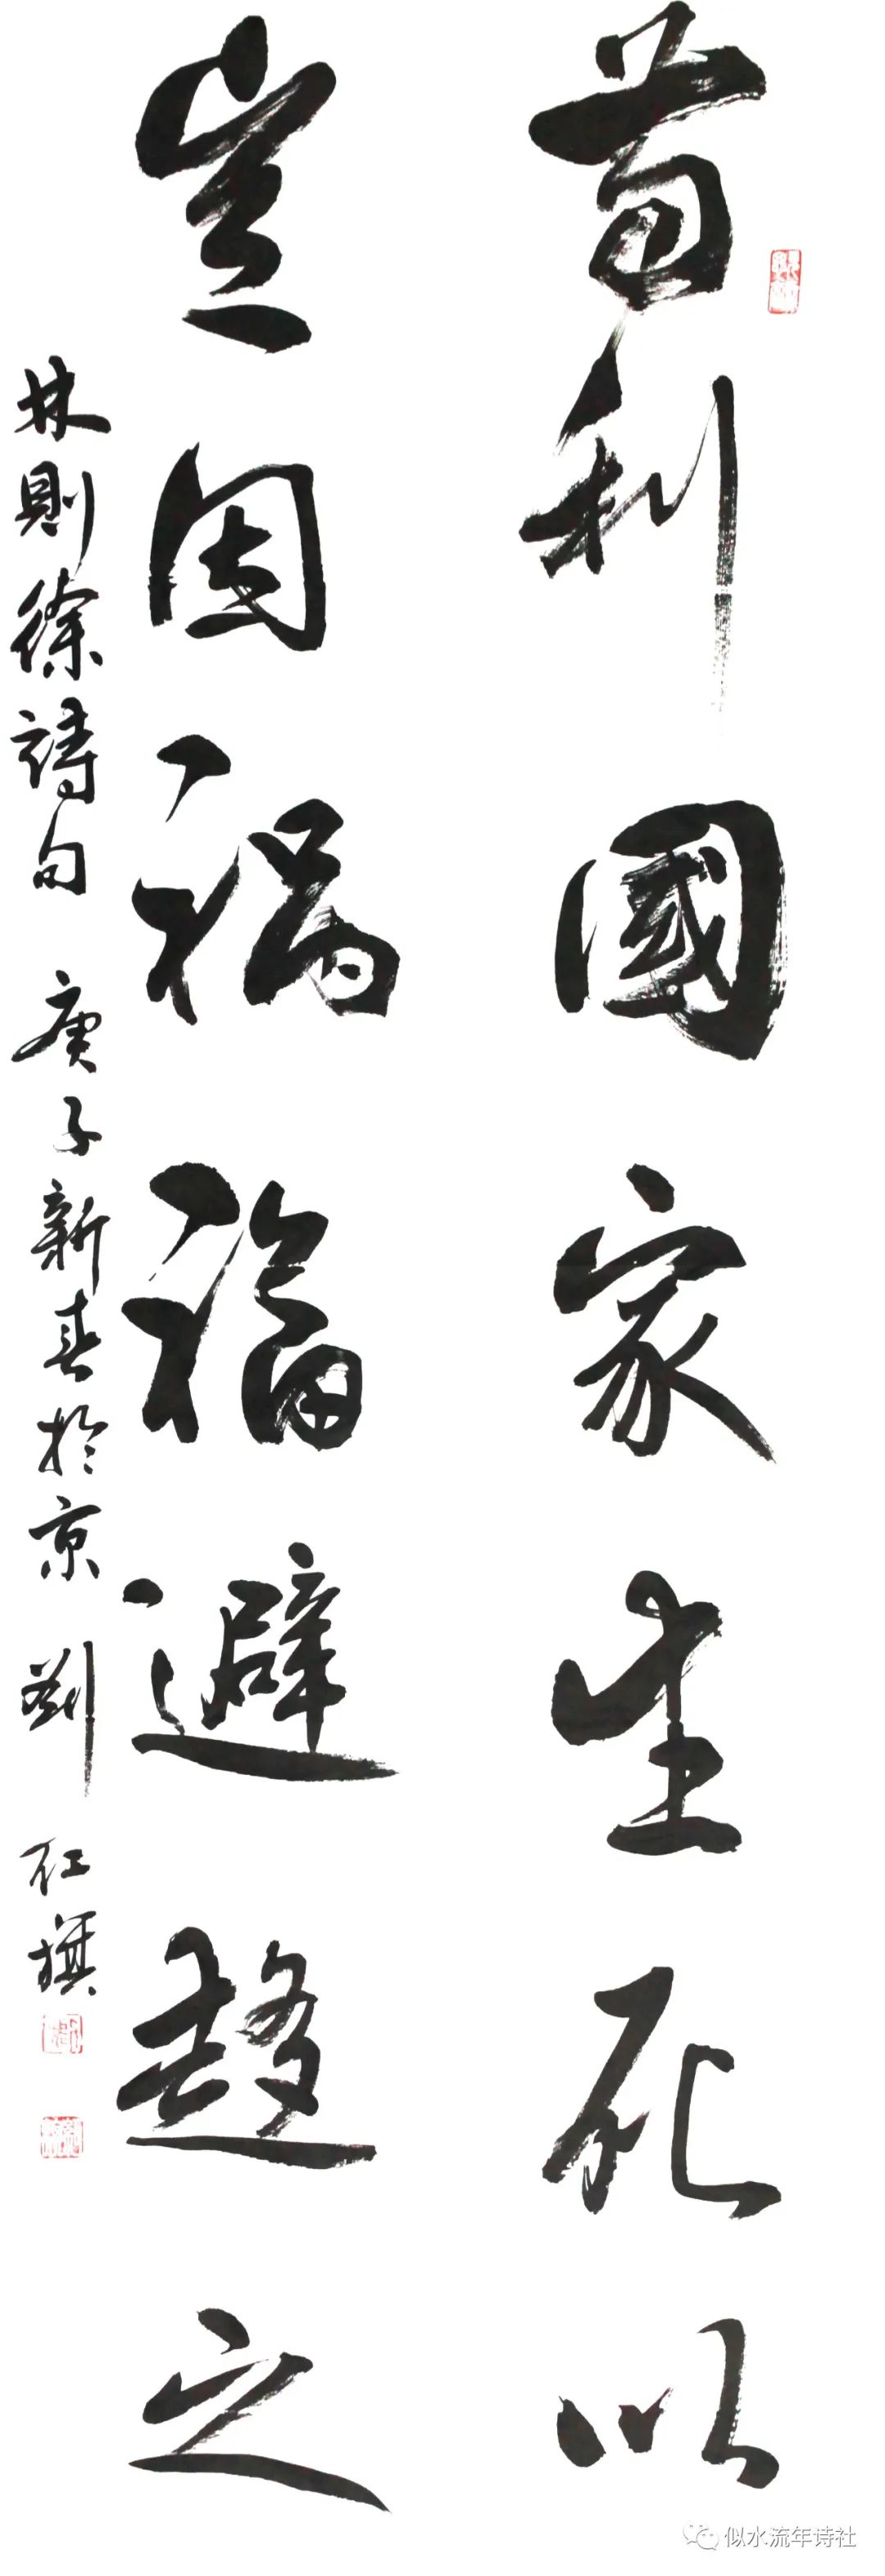 苟利國家生死以
豈因禍福避趨之
林則徐詩句 庚子新春於京 劉紅旗
似水流年诗社